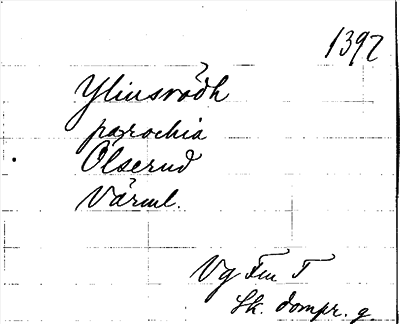 1392
Yliusrődh
parochia
Ölserud
Värml.
Vg Fm T
Sk. dompr. g.